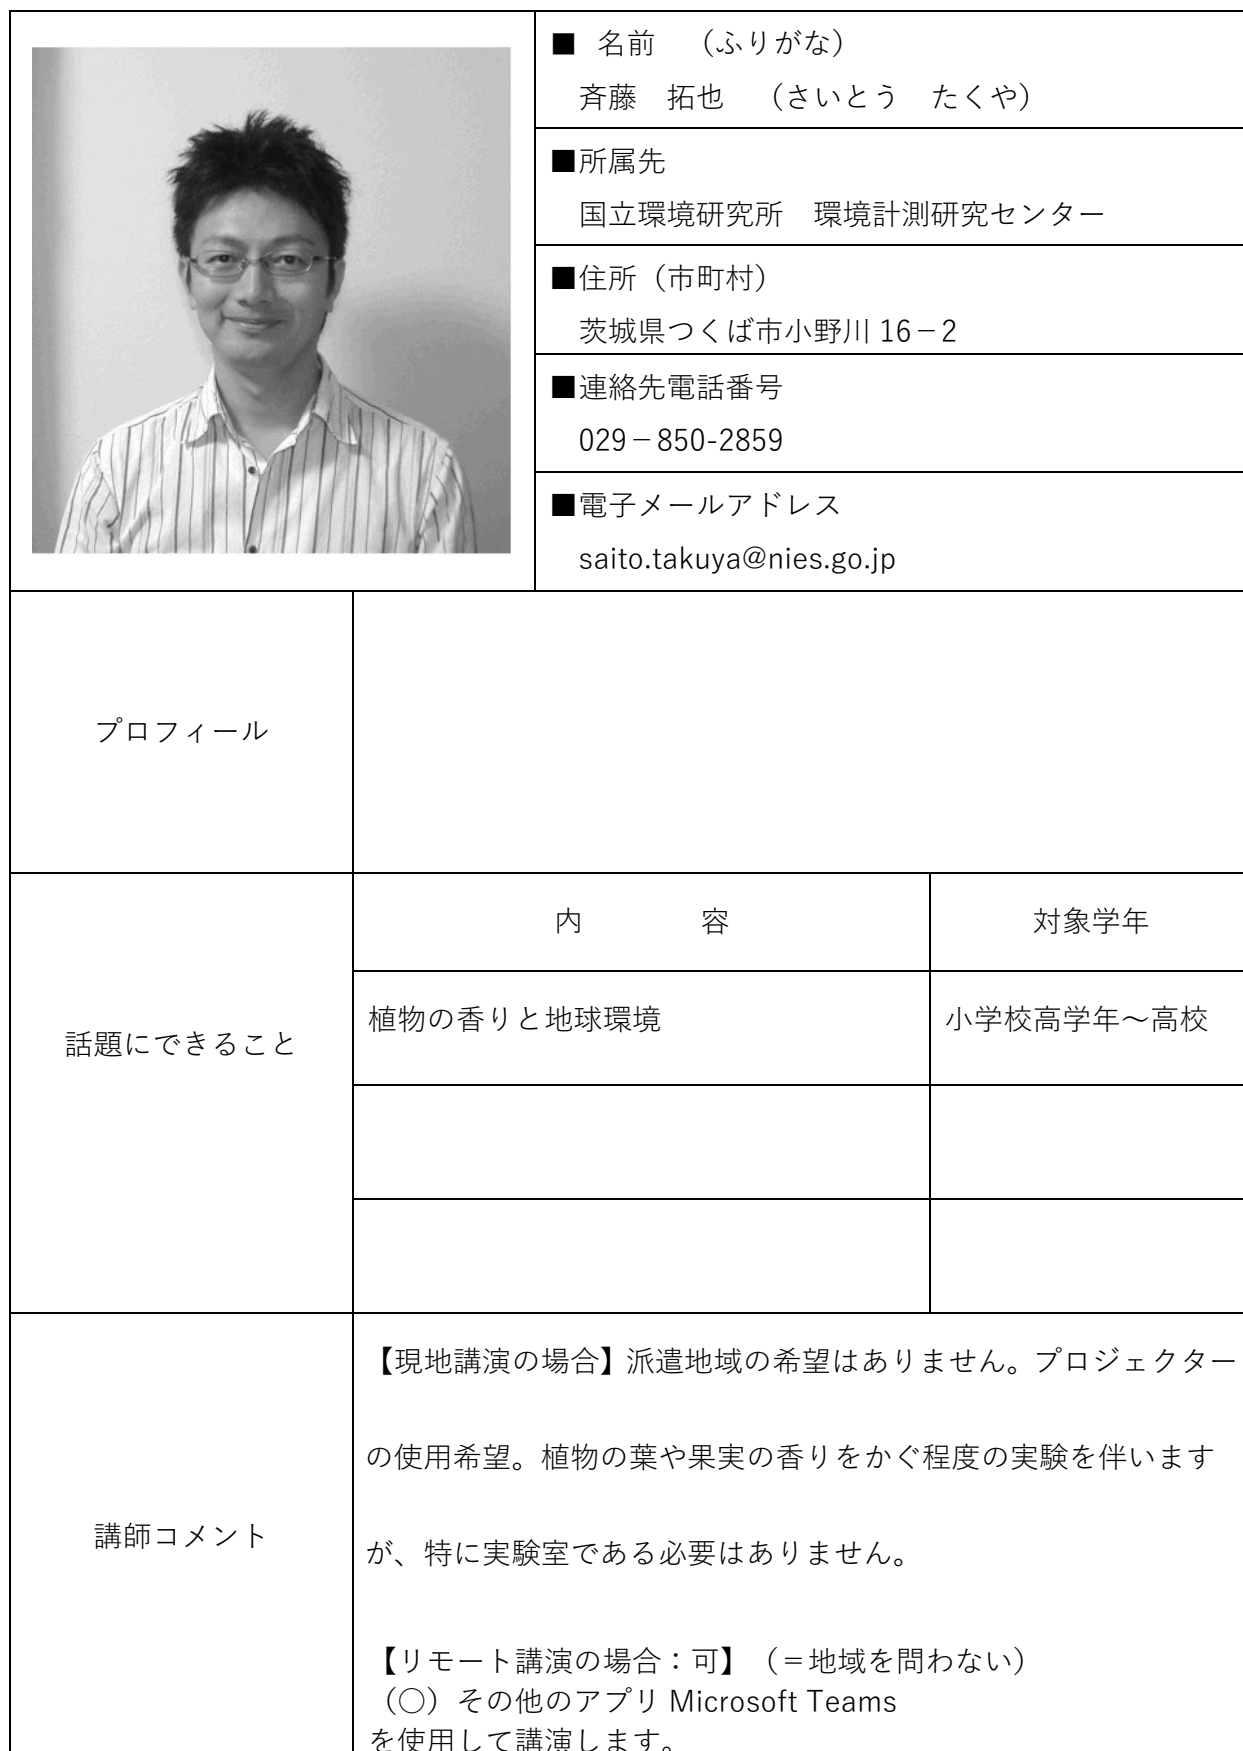 ■ 名前 （ふりがな）
斉藤 拓也 （さいとう たくや）
■所属先
国立環境研究所 環境計測研究センター
■住所（市町村）
茨城県つくば市小野川 16－2
■連絡先電話番号
029－850-2859
■電子メールアドレス
saito.takuya@nies.go.jp
プロフィール
話題にできること
内 容
対象学年
植物の香りと地球環境
小学校高学年～高校
講師コメント
【現地講演の場合】派遣地域の希望はありません。プロジェクター
の使用希望。植物の葉や果実の香りをかぐ程度の実験を伴います
が、特に実験室である必要はありません。
【リモート講演の場合：可】（＝地域を問わない）
（○）その他のアプリ Microsoft Teams
を使用して講演します。